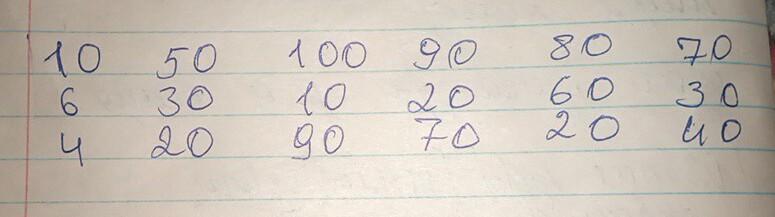 10 50 100 90 80 70
6 30 10 20 60 30
4 20 90 70 20 40